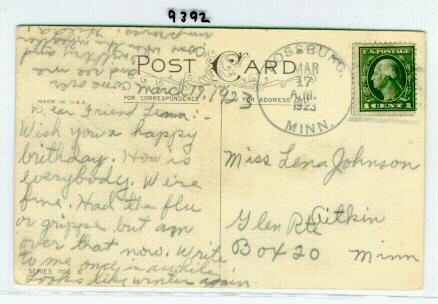 9392
POST CARD
FOR CORRESPONDENCE
FOR ADDRESS
MADE IN U.S.A.
March 17, 1923
Dear Friend Lena:-
Wish you a happy
birthday. How is
everybody. We're
fine. Had the flu
or grippe but am
over that now. Write
to me once in awhile
Looks like winter again
SERIES 700 E
Come over
and see me
Hilda
OSSBURG,
MAR
17
A.M.
1923
MINN.
U.S. POSTAGE
1 CENT 1
Miss Lena Johnson
Aitkin
Glen Rte
Box 20 Minn